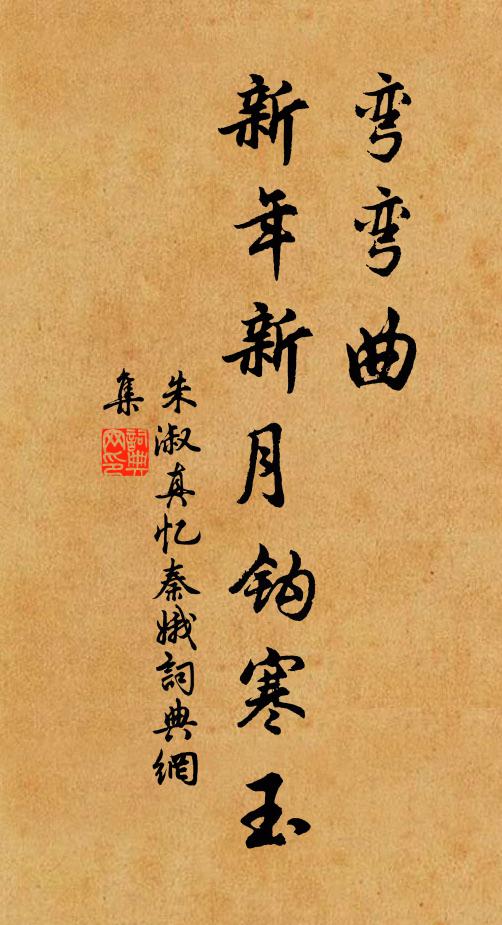 弯弯曲
新年新月钩寒玉
朱淑真忆秦娥詞典網
集
詞典网印